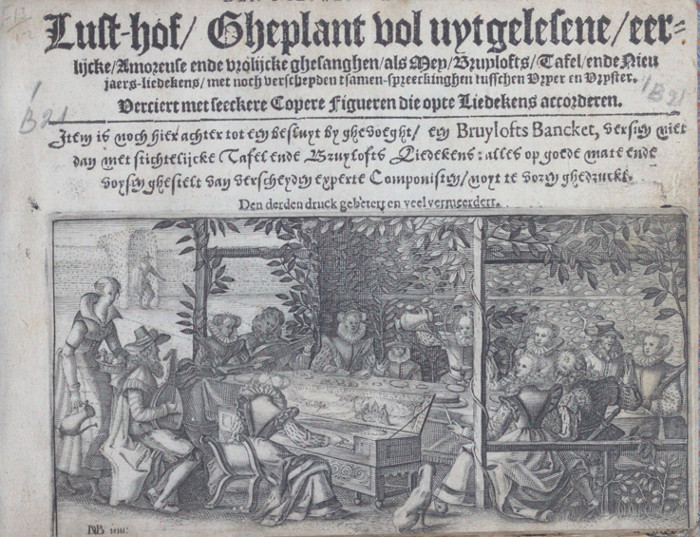 Lust-hof/ Gheplant vol uytgelesene/eer-
lijcke/Amoreuse ende vrolijcke ghesanghen/als Mey/Bruylofts/Tafel/ende Nieu
jaers-liedekens/met noch verscheyden tsamen-spreeckinghen tusschen Vryer en Vryster.
Verciert met seeckere Copere Figueren die opte Liedekens accorderen.
Item is noch hier achter tot een besluyt by ghevoeght/ een Bruylofts Bancket, versien met
dan met stichtelijcke Tafel ende Bruylofts Liedekens: alles op goede mate ende
voysen ghestelt van verscheyden experte Componisten/noyt te voren ghedruckt.
Den derden druck gebetert en veel vermeerdert.
B21
B21